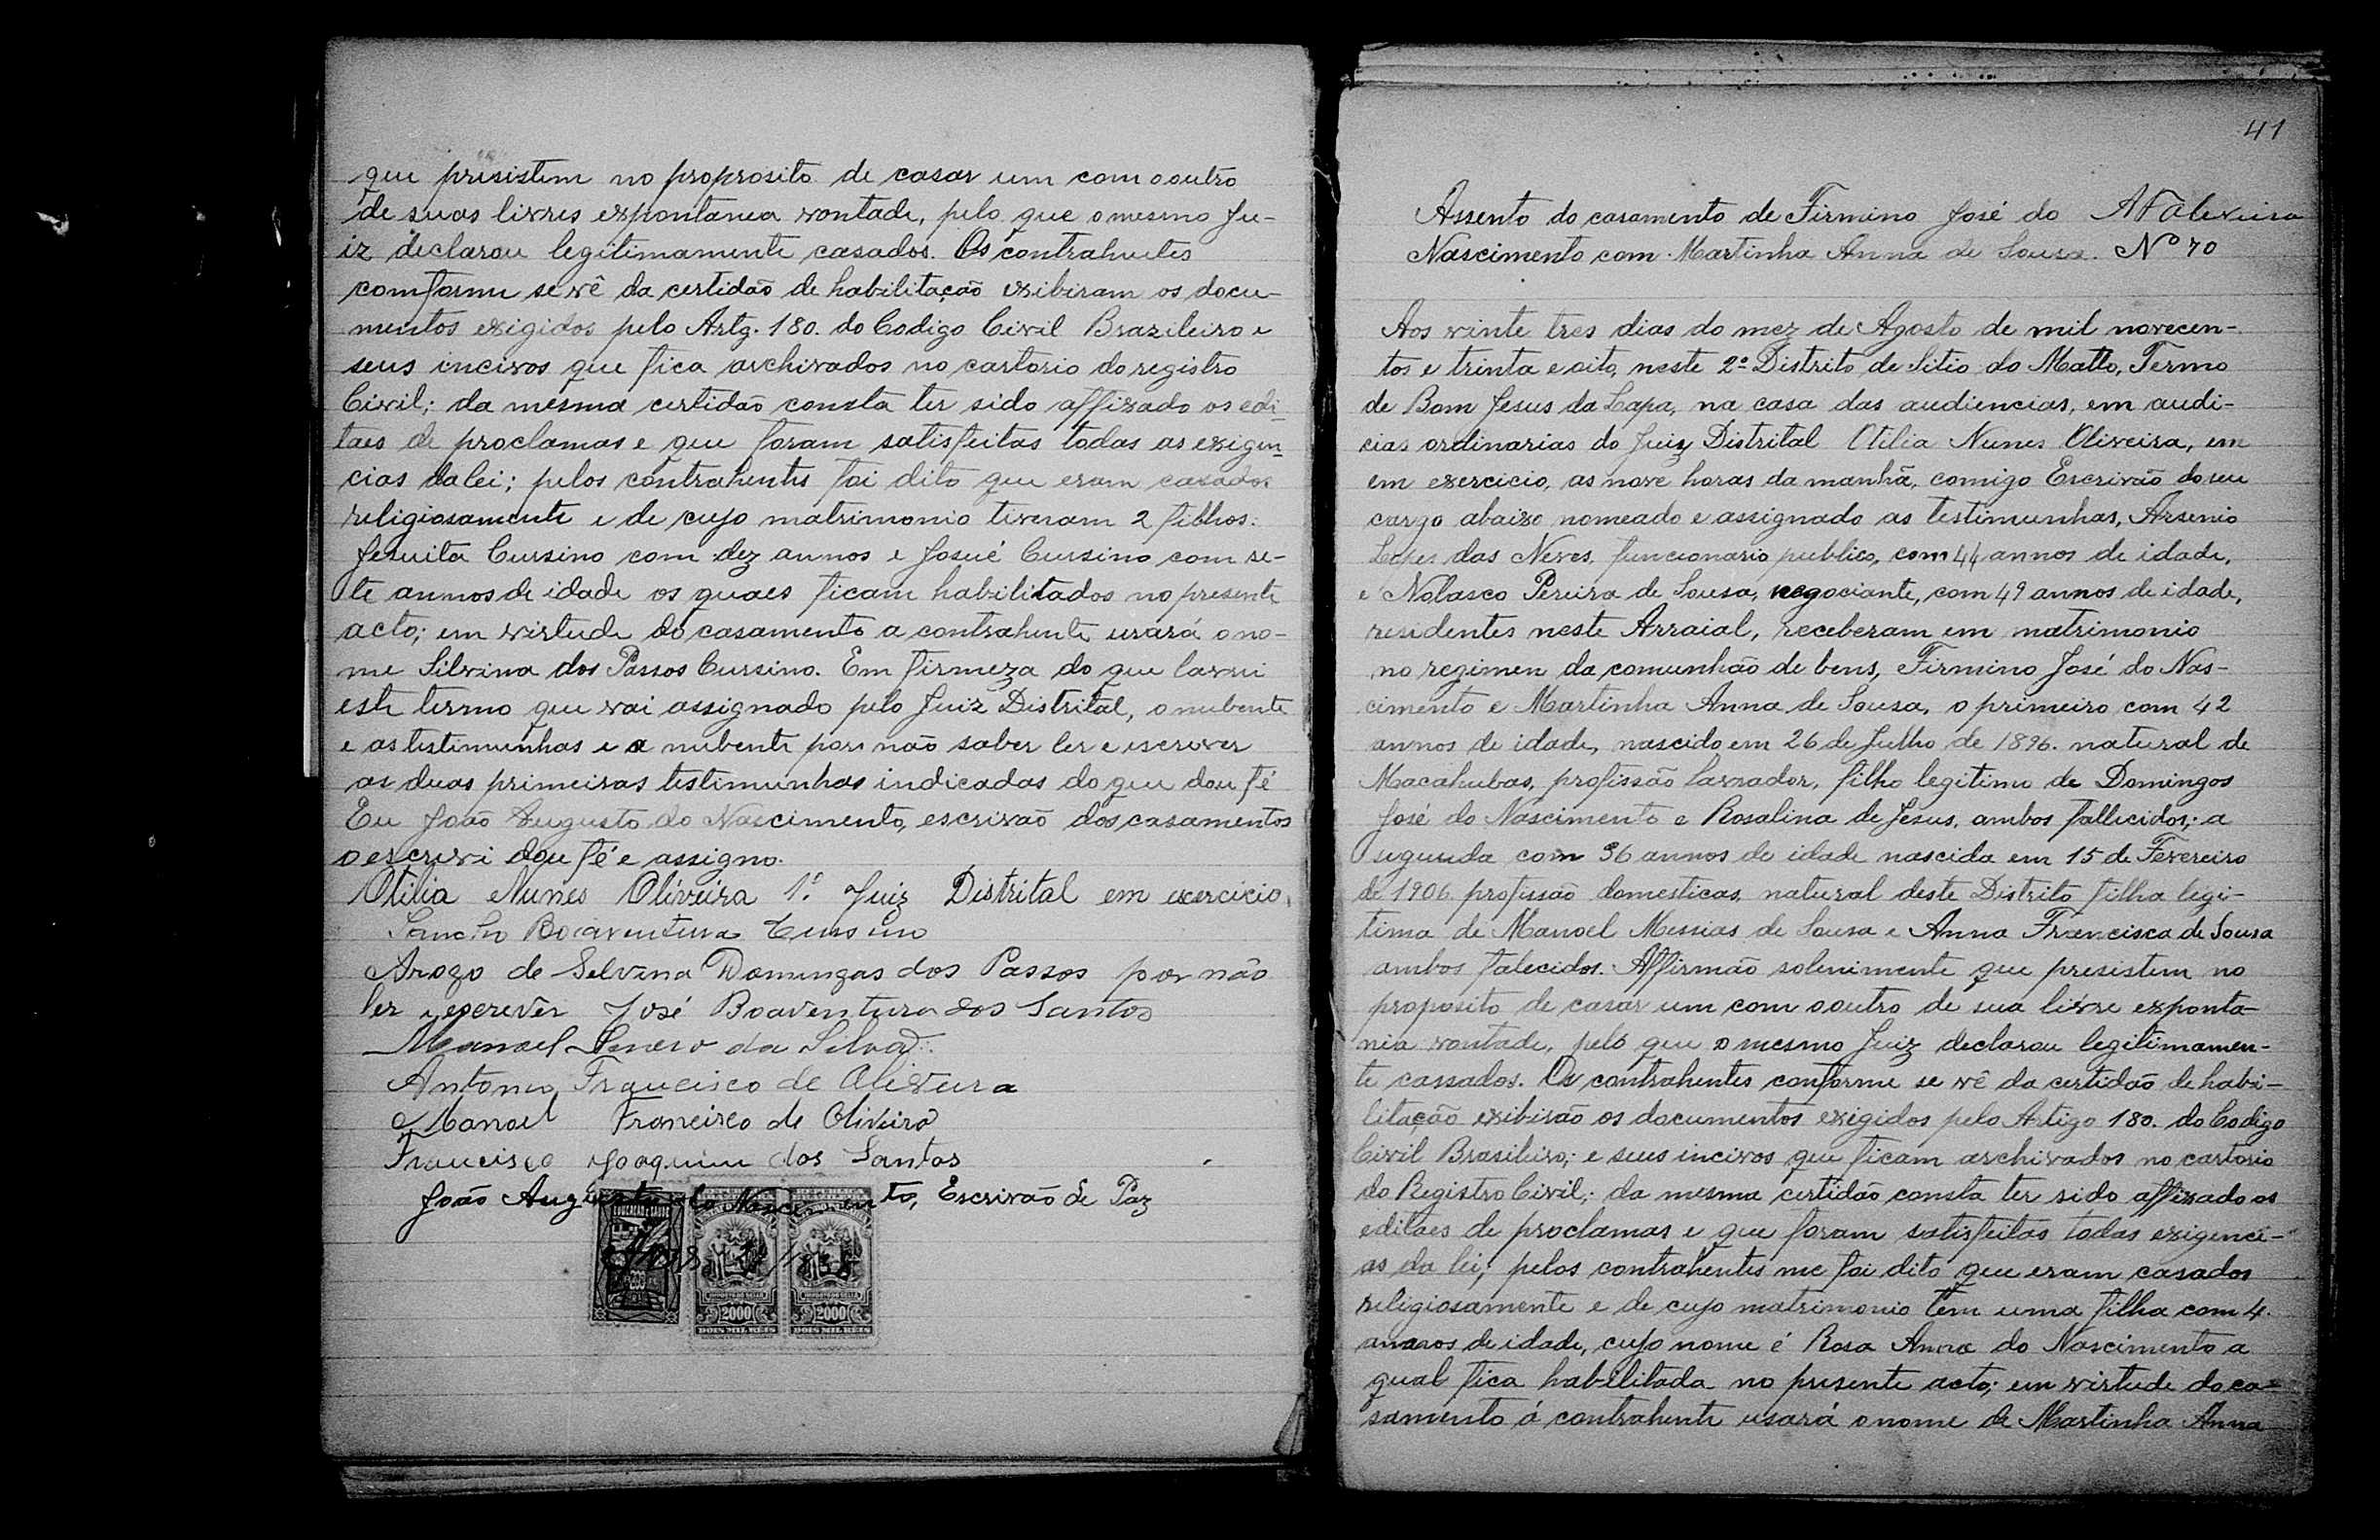 que presistem no proprosito de casar um com o outro
de suas livres expontanea vontade, pelo que o mesmo Ju-
iz declarou legitimamente casados. Os contrahentes
comforme se vê da certidão de habilitação exibiram os docu-
mentos exigidos pelo Artg. 180. do Codigo Civil Brazileiro e
seus incivos que fica archivados no cartorio do registro
Civil; da mesma certidão consta ter sido affixado os edi-
taes de proclamas e que foram satisfeitas todas as exigen-
cias da lei; pelos contrahentes foi dito que eram casados
religiosamente e de cujo matrimonio tiveram 2 filhos:
Jesuita Cursino com dez annos e Josué Cursino com se-
te annos de idade os quaes ficam habilitados no presente
acto; em virtude do casamento a contrahente usará o no-
me Silvina dos Passos Cursino. Em firmeza do que lavrei
este termo que vai assignado pelo Juiz Distrital, o nubente
e as testimunhas e a nubente por não saber ler e escrever
as duas primeiras testimunhas indicadas do que dou fé
Eu João Augusto do Nascimento, escrivão dos casamentos
o escrevi dou fé e assigno.
Otilia Nunes Oliveira 1º Juiz Distrital em exercicio,
Sancho Boaventura Cursino
Arogo de Selvina Domingas dos Passos por não
ler e escrever José Boaventura dos Santos
Manoel da Silva
Antonio Francisco de Oliveira
Manoel Francisco de Oliveira
Francisco Joaquim dos Santos
João Augusto do Nascimento, Escrivão de Paz
EDUCAÇÃO E SAUDE
200
IMPOSTO DO SELLO
2000
DOIS MIL REIS
IMPOSTO DO SELLO
2000
DOIS MIL REIS
41
Assento do casamento de Firmino José do
Nascimento com Martinha Anna de Sousa. Nº 70
Aos vinte tres dias do mez de Agosto de mil novecen-
tos e trinta e oito, neste 2º Distrito de Sitio do Matto, Termo
de Bom Jesus da Lapa, na casa das audiencias, em audi-
cias ordinarias do Juiz Distrital Otilia Nunes Oliveira, em
em exercicio, as nove horas da manhã, comigo Escrivão do seu
cargo abaixo nomeado e assignado as testimunhas, Arsenio
Lopes das Neves, funcionario publico, com 44 annos de idade,
e Nolasco Pereira de Sousa, negociante, com 49 annos de idade,
residentes neste Arraial, receberam em matrimonio
no regimen da comunhão de bens, Firmino José do Nas-
cimento e Martinha Anna de Sousa, o primeiro com 42
annos de idade, nascido em 26 de Julho de 1896. natural de
Macahubas, profissão lavrador, filho legitimo de Domingos
José do Nascimento e Rosalina de Jesus, ambos fallecidos; a
segunda com 36 annos de idade nascida em 15 de Fevereiro
de 1906 profissão domesticas, natural deste Distrito filha legi-
tima de Manoel Messias de Sousa e Anna Francisca de Sousa
ambos falecidos. Affirmão solenimente que presistem no
proposito de casar um com o outro de sua livre exponta-
nia vontade, pelo que o mesmo Juiz declarou legitimamen-
te cassados. Os contrahentes conforme se vê da certidão de habi-
litação exibirão os documentos exigidos pelo Artigo 180. do Codigo
Civil Brasileiro; e seus incivos que ficam archivados no cartorio
do Registro Civil; da mesma certidão consta ter sido affixado os
editaes de proclamas e que foram satisfeitas todas exigenci-
as da lei; pelos contrahentes me foi dito que eram casados
religiosamente e de cujo matrimonio têm uma filha com 4.
annos de idade, cujo nome é Rosa Anna do Nascimento a
qual fica habilitada no presente acto; em virtude do ca-
samento á contrahente usará o nome de Martinha Anna